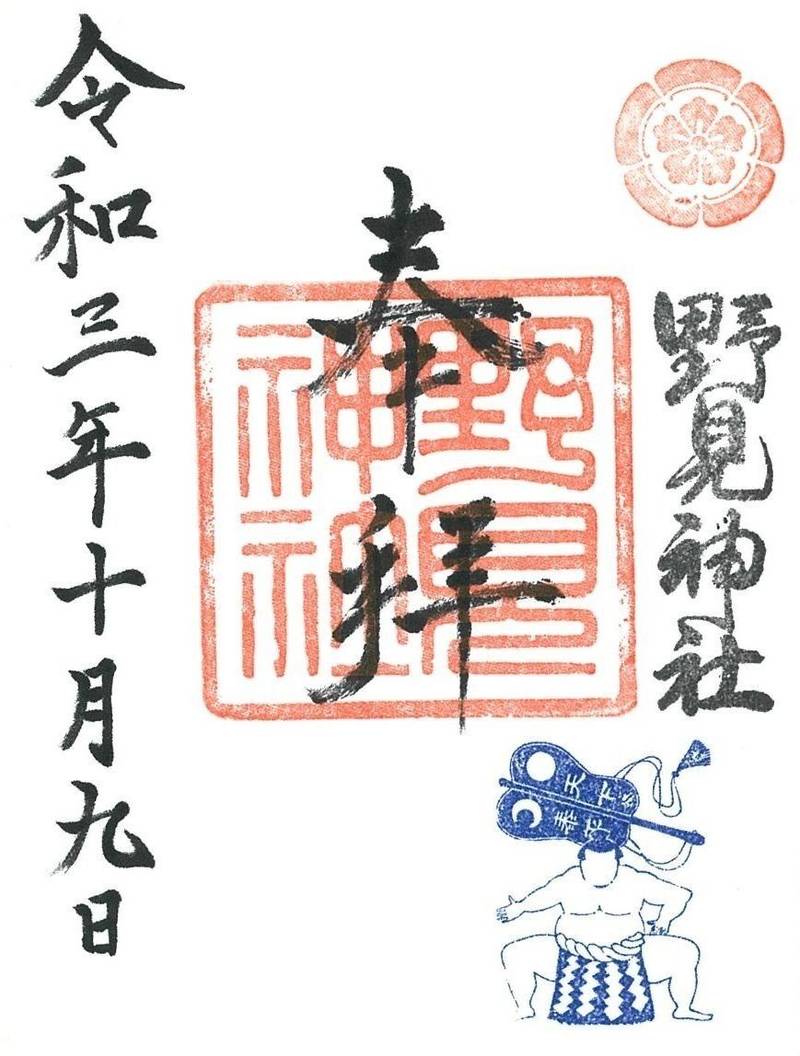 野見神社
奉拝
野見
神社
令和三年十月九日
天下
泰平